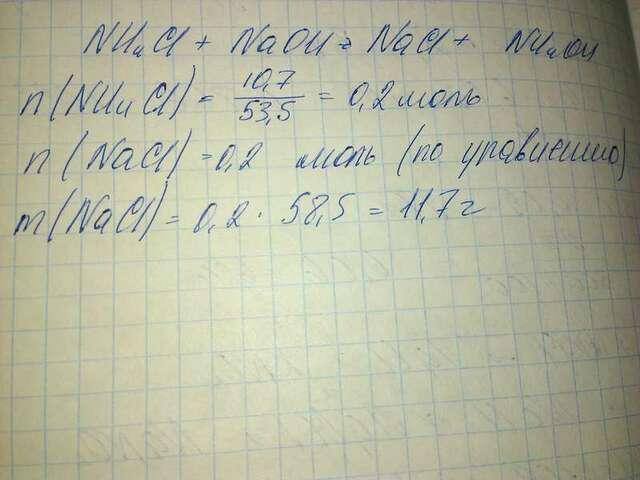 NH₄Cl + NaOH = NaCl + NH₄OH
n(NH₄Cl) = 10,7 / 53,5 = 0,2 моль
n(NaCl) = 0,2 моль (по уравнению)
m(NaCl) = 0,2 · 58,5 = 11,7 г